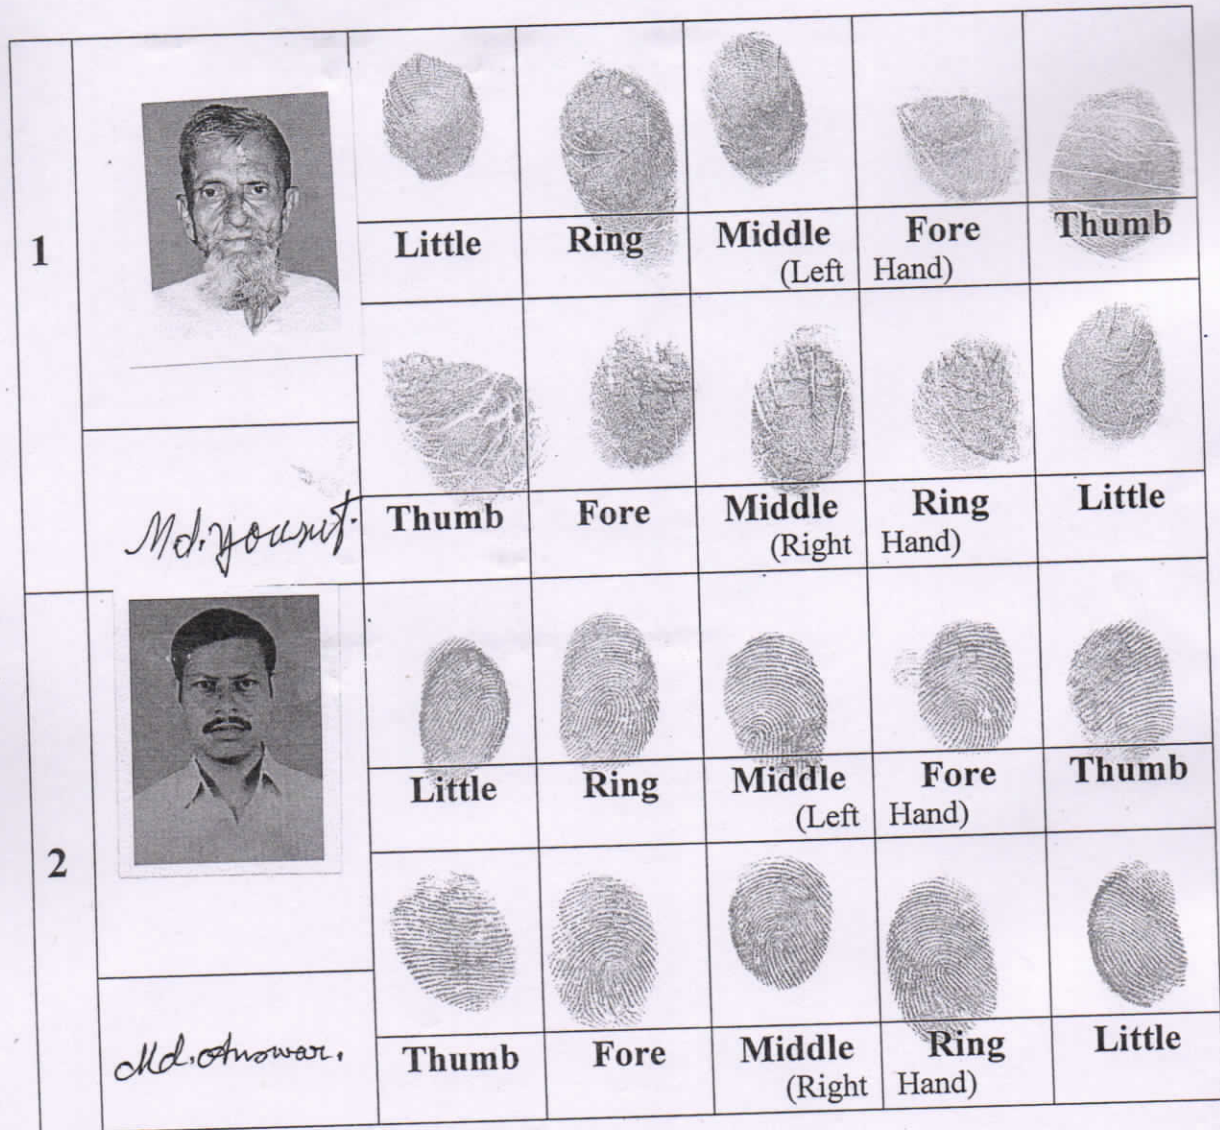 1
Little Ring Middle Fore Thumb
(Left Hand)
Thumb Fore Middle Ring Little
(Right Hand)
Md. Yousuf.
2
Little Ring Middle Fore Thumb
(Left Hand)
Thumb Fore Middle Ring Little
(Right Hand)
Md. Anowar.